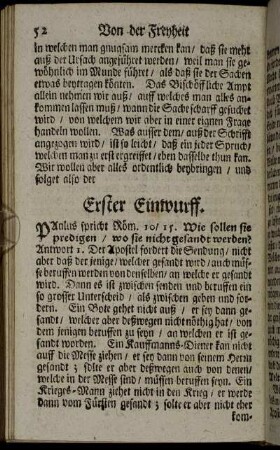 52 Von der Freyheit
in welchen man gnugsam mercken kan / daß sie mehr
auß der Ursach angeführet werden / weil man sie ge-
wöhnlich im Munde führet / als daß sie der Sachen
etwas beytragen könten. Das Bischöfliche Ampt
allein nehmen wir auß / auff welches man alles an-
kommen lassen muß / wann die Sach scharff gesuchet
wird / von welchem wir aber in einer eignen Frage
handeln wollen. Was ausser dem / auß der Schrifft
angezogen wird / ist so leicht / daß ein jeder Spruch /
welchen man zu erst ergreiffet / eben dasselbe thun kan.
Wir wollen aber alles ordentlich beybringen / und
folget also der
Erster Einwurff.
PAulus spricht Röm. 10 / 15. Wie sollen sie
predigen / wo sie nicht gesandt werden?
Antwort 1. Der Apostel fordert die Sendung / nicht
aber daß der jenige / welcher gesandt wird / auch müs-
se beruffen werden von denselben / an welche er gesandt
wird. Dann es ist zwischen senden und beruffen ein
so grosser Unterscheid / als zwischen geben und for-
dern. Ein Bote gehet nicht auß / er sey dann ge-
sandt / welcher aber deßwegen nicht nöthig hat / von
dem jenigen beruffen zu seyn / an welchen er ist ge-
sandt worden. Ein Kauffmanns-Diener kan nicht
auff die Messe ziehen / er sey dann von seinem Herrn
gesandt; solte er aber deßwegen auch von denen /
welche in der Messe sind / müssen beruffen seyn. Ein
Krieges-Mann ziehet nicht in den Krieg / er werde
dann vom Fürsten gesandt; solte er aber nicht eher
kom-